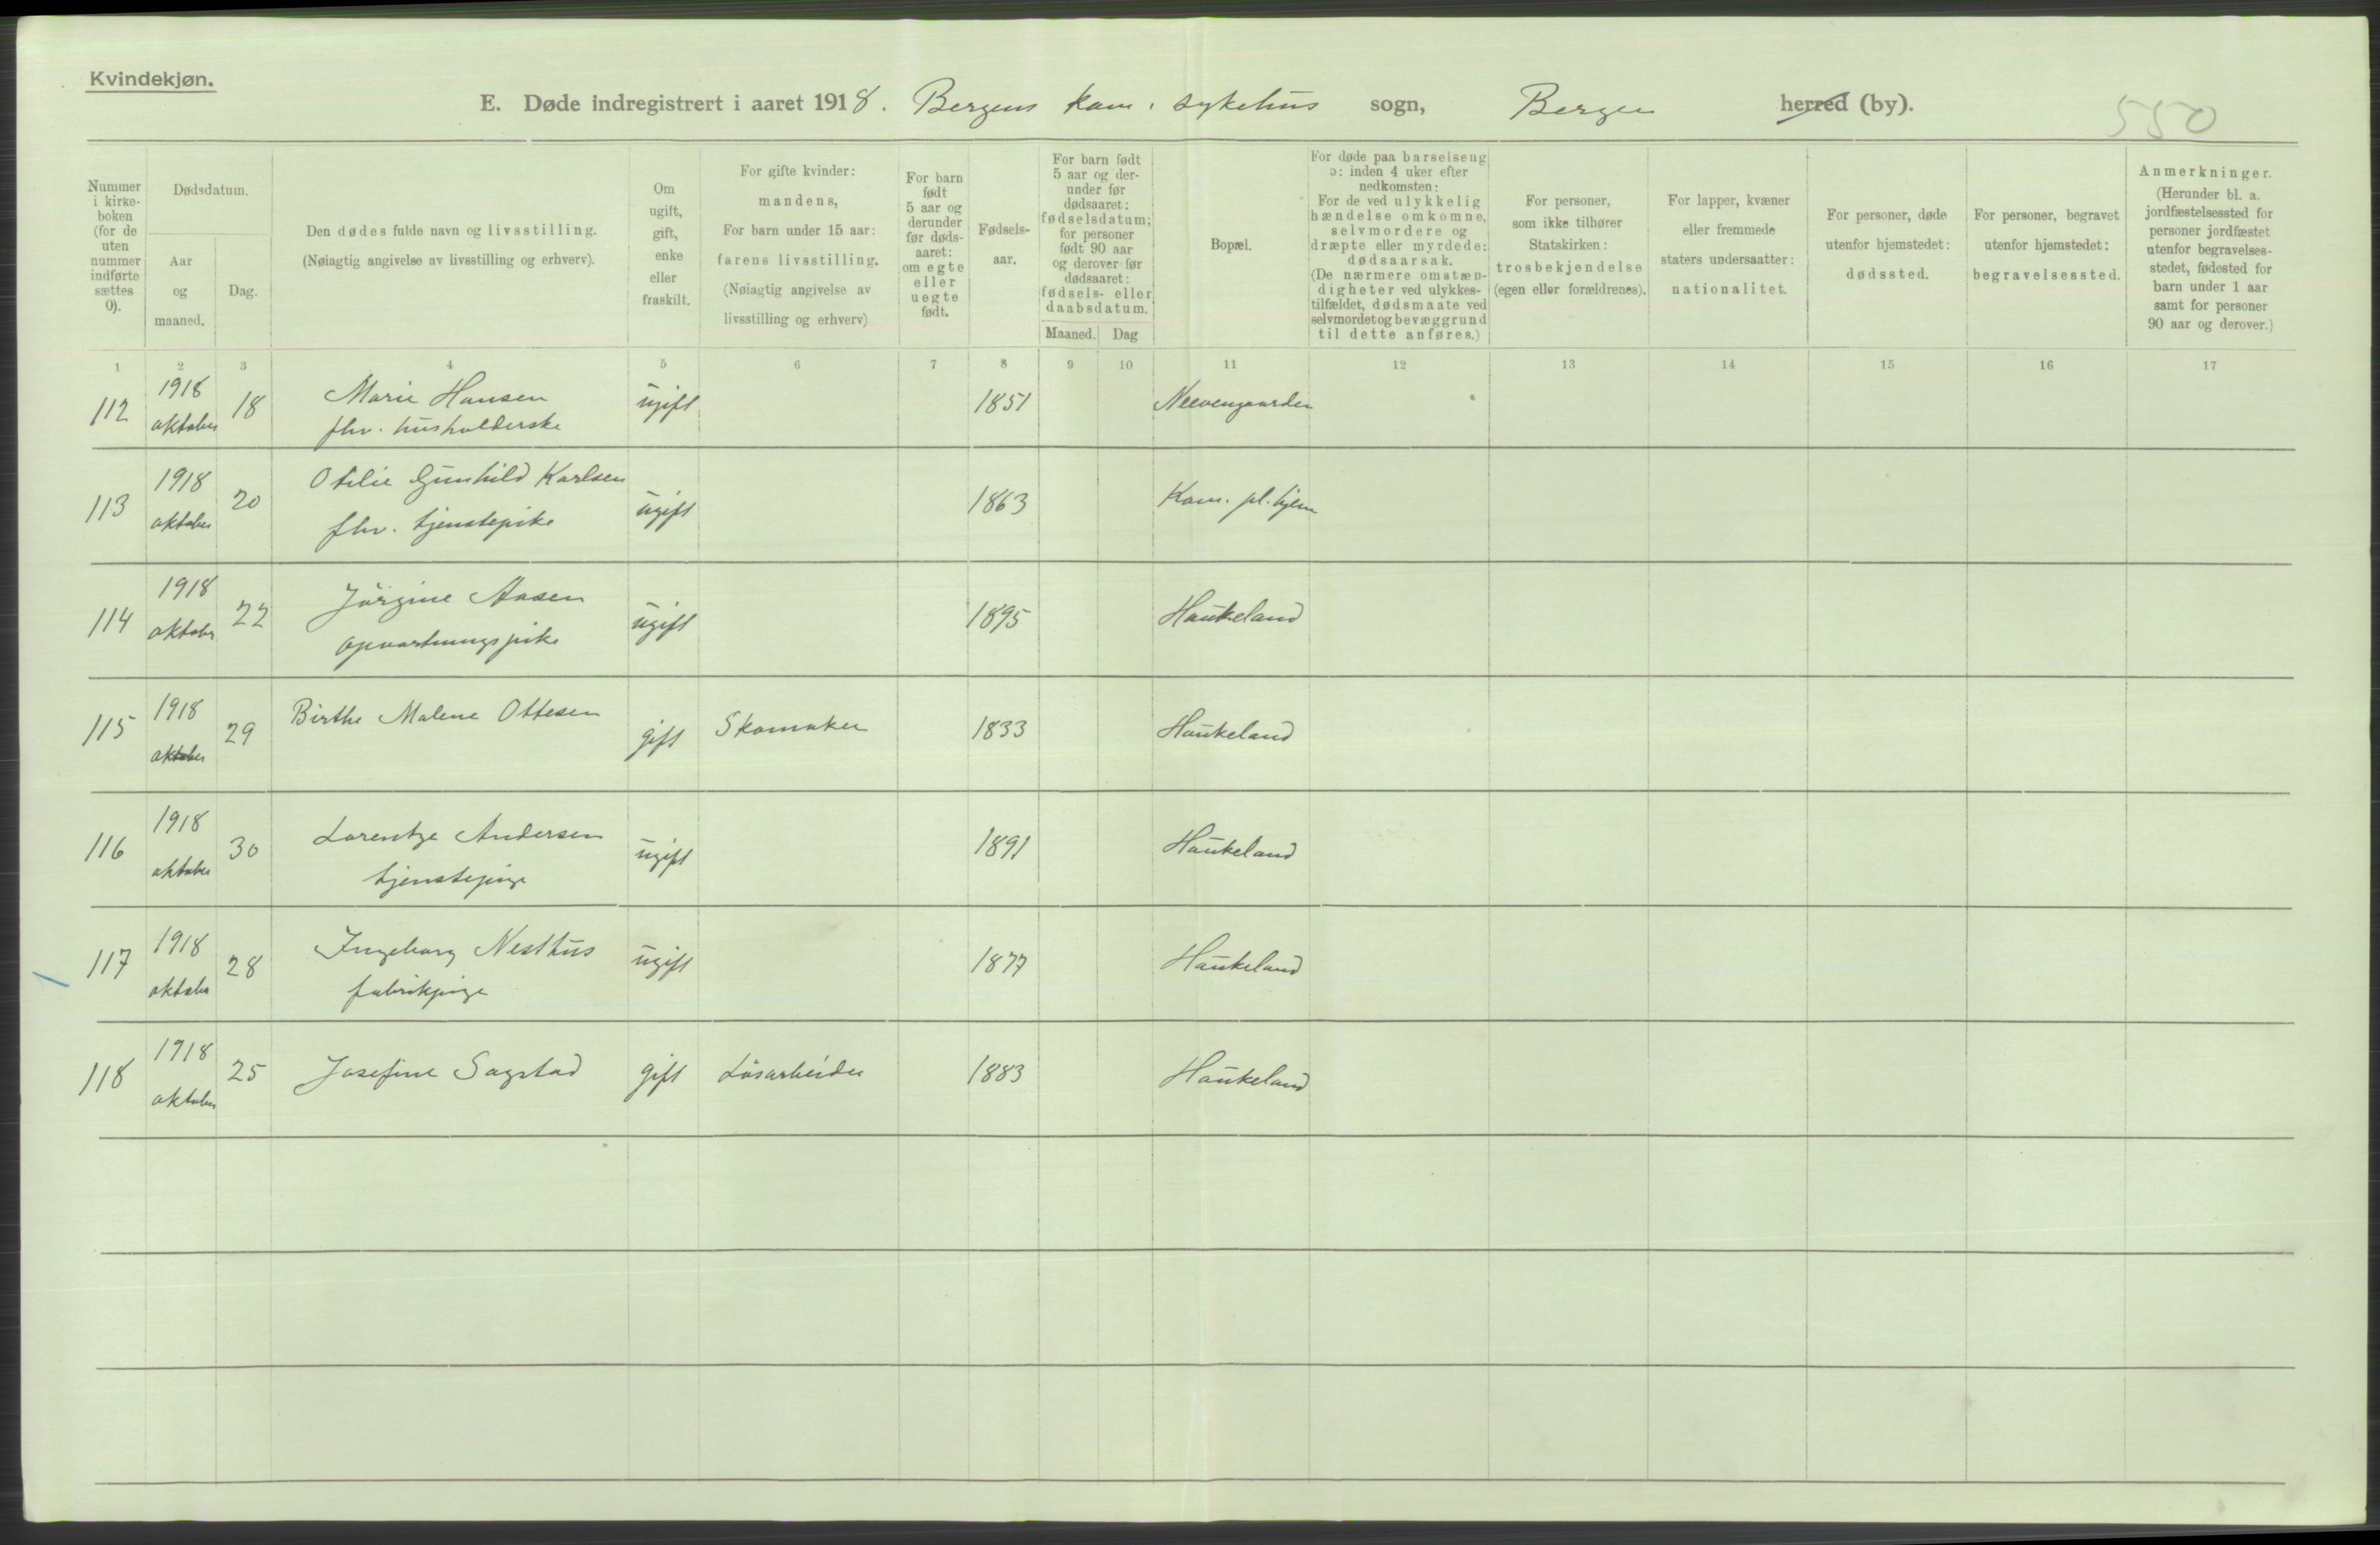 Kvindekjøn.
E. Døde indregistrert i aaret 1918. Bergens kom. sykehus sogn, Bergen herred (by).
550
Nummer i kirke-boken (for de uten nummer indførte sættes 0).
Dødsdatum.
Aar og maaned.
Dag.
Den dødes fulde navn og livsstilling.
(Nøiagtig angivelse av livsstilling og erhverv).
Om ugift, gift, enke eller fraskilt.
For gifte kvinder: mandens,
For barn under 15 aar: farens livsstilling.
(Nøiagtig angivelse av livsstilling og erhverv)
For barn født 5 aar og derunder før døds-aaret: om egte eller uegte født.
Fødsels-aar.
For barn født 5 aar og der-under før dødsaaret: fødselsdatum; for personer født 90 aar og derover før dødsaaret: fødsels- eller daabsdatum.
Maaned. Dag
Bopæl.
For døde paa barselseng ɔ: inden 4 uker efter nedkomsten:
For de ved ulykkelig hændelse omkomne, selvmordere og dræpte eller myrdede: dødsaarsak.
(De nærmere omstæn-digheter ved ulykkes-tilfældet, dødsmaate ved selvmordet og bevæggrund til dette anføres.)
For personer, som ikke tilhører Statskirken: trosbekjendelse (egen eller forældrenes).
For lapper, kvæner eller fremmede staters undersaatter: nationalitet.
For personer, døde utenfor hjemstedet: dødssted.
For personer, begravet utenfor hjemstedet: begravelsessted.
Anmerkninger.
(Herunder bl. a. jordfæstelsessted for personer jordfæstet utenfor begravelses-stedet, fødested for barn under 1 aar samt for personer 90 aar og derover.)
1 2 3 4 5 6 7 8 9 10 11 12 13 14 15 16 17
112 1918 oktober 18 Marie Hansen ugift 1851 Neevengaarden
fhv. husholderske
113 1918 oktober 20 Otilie Gunhild Karlsen ugift 1863 Kom. pl. hjem
fhv. tjenstepike
114 1918 oktober 22 Jørgine Aasen ugift 1895 Haukeland
opvartningspike
115 1918 oktober 29 Birthe Malene Ottesen gift Skomaker 1833 Haukeland
116 1918 oktober 30 Lorentze Andersen ugift 1891 Haukeland
tjenstepige
117 1918 oktober 28 Ingeborg Nesthus ugift 1877 Haukeland
fabrikpige
118 1918 oktober 25 Josefine Sagstad gift Løsarbeider 1883 Haukeland